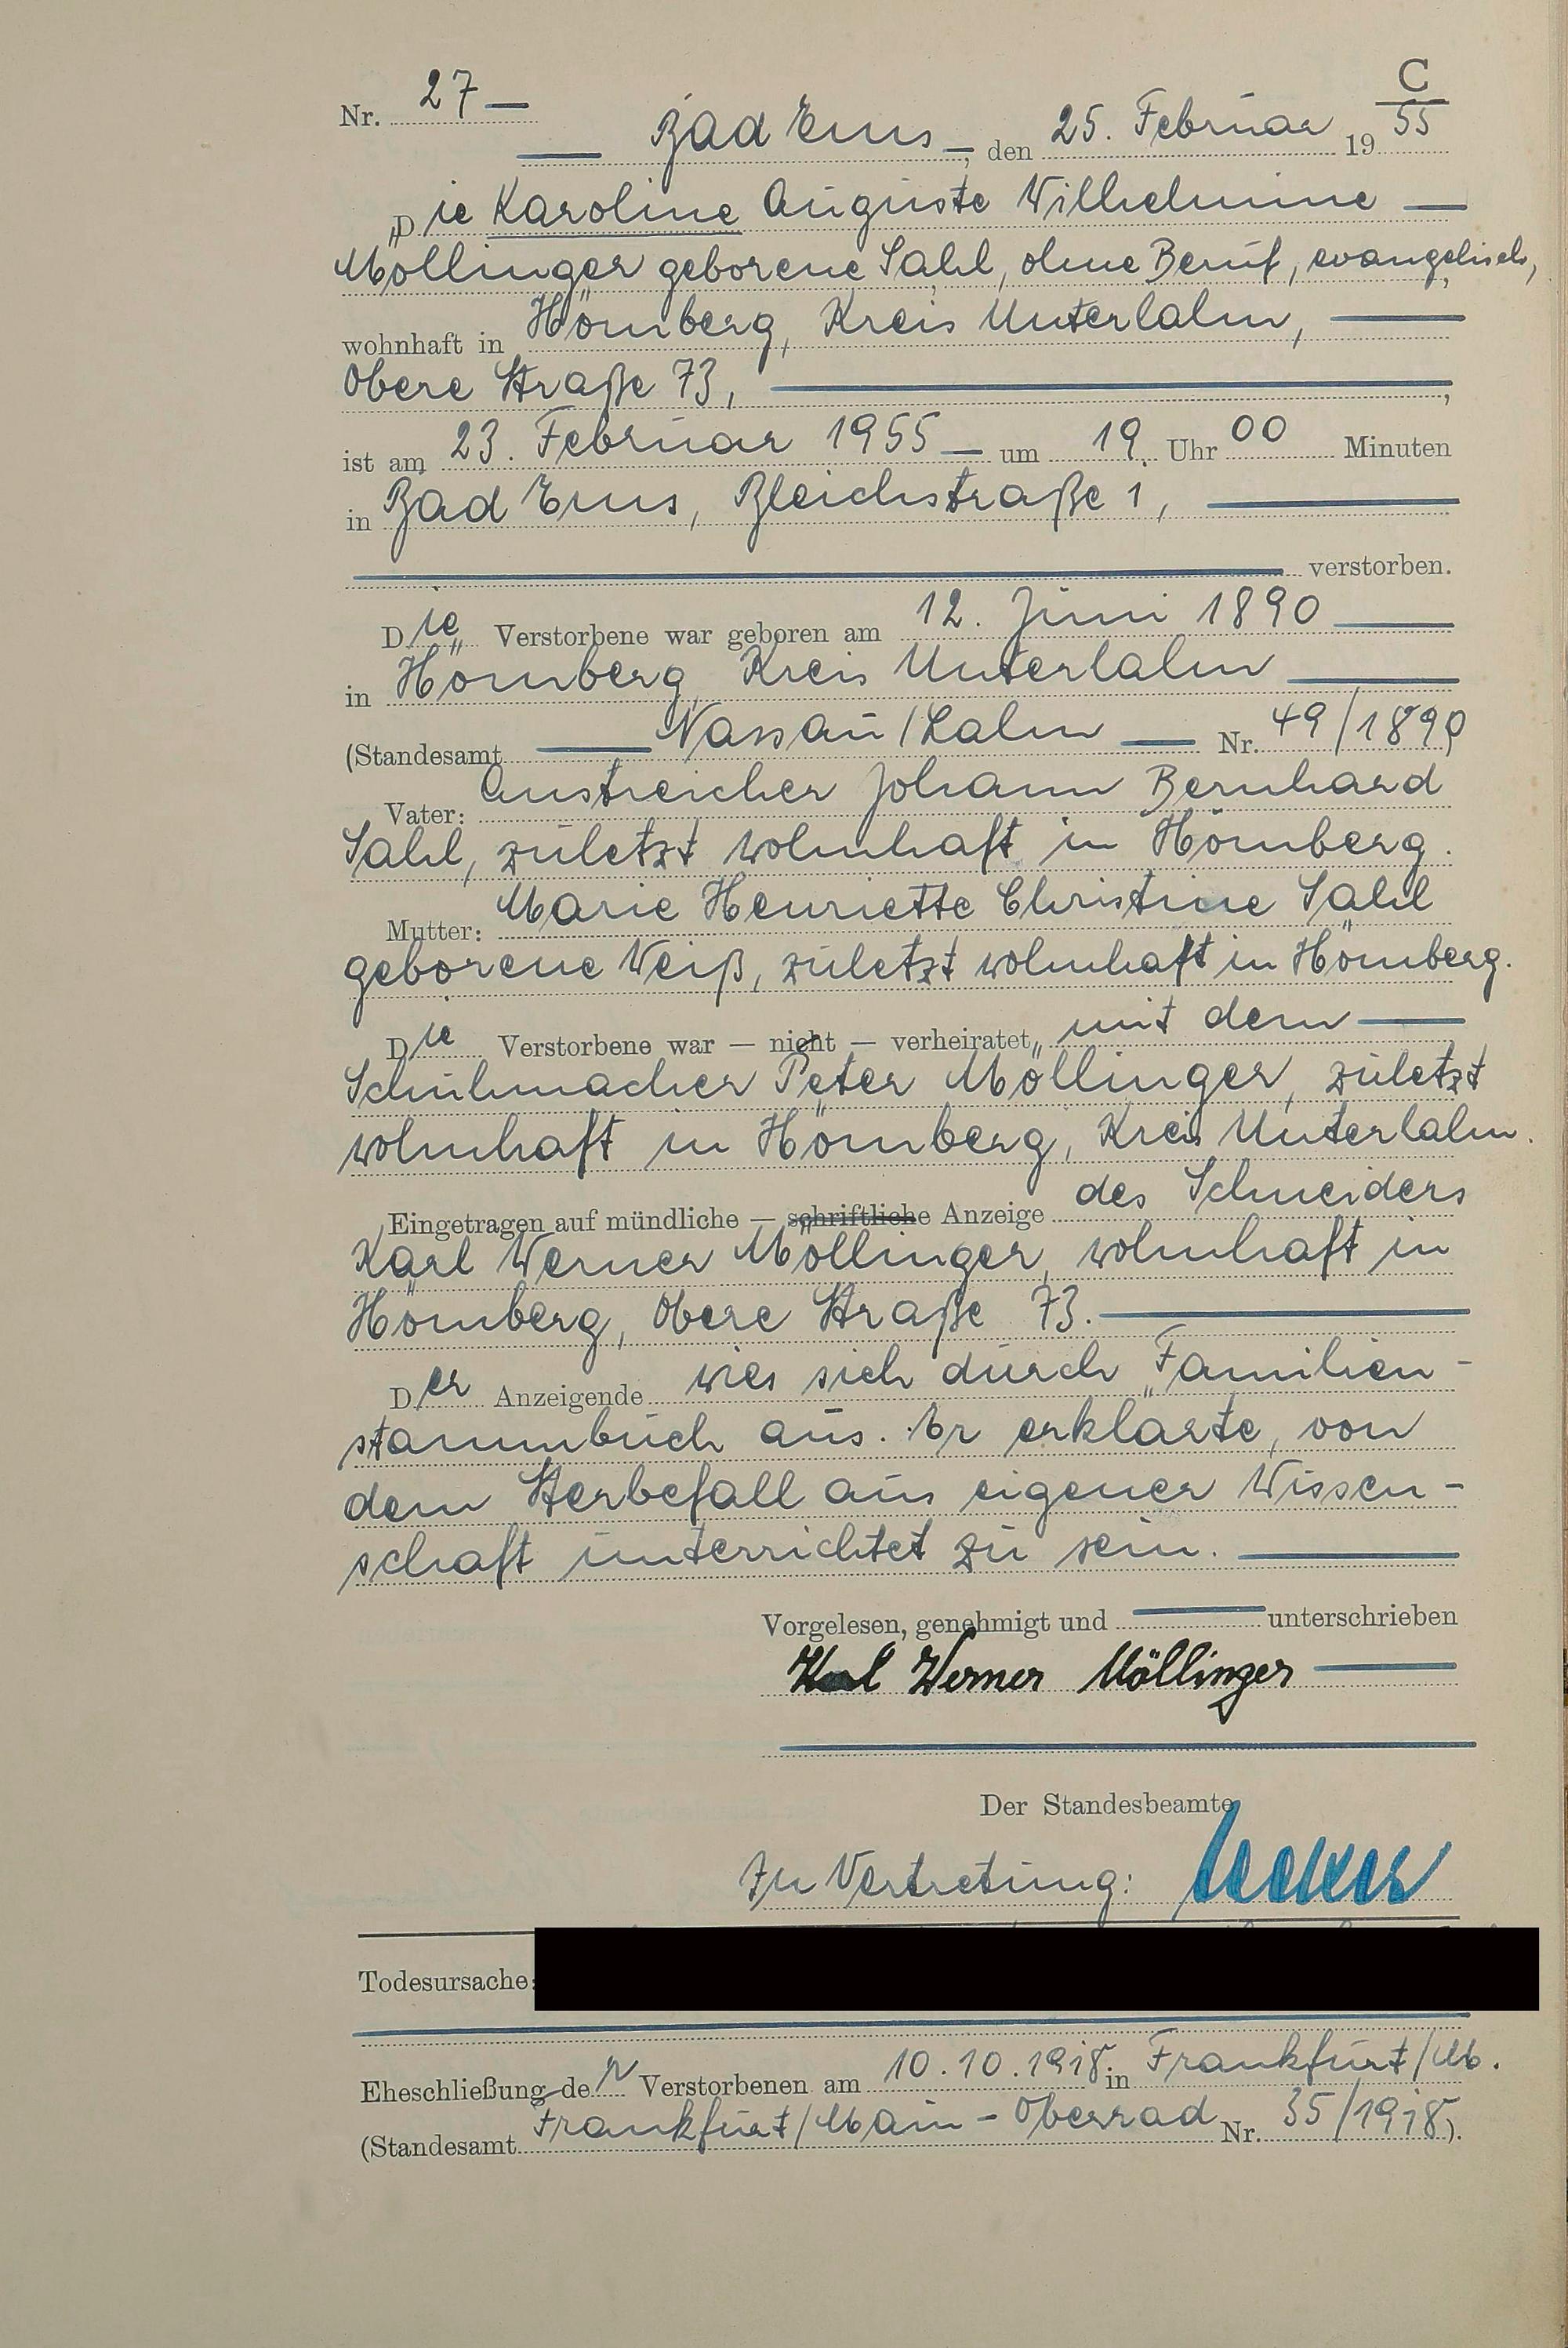 C
Nr. 27 —
— Bad Ems —, den 25. Februar 1955
Die Karoline Auguste Wilhelmine —
Möllinger geborene Sahl, ohne Beruf, evangelisch,
wohnhaft in Hömberg, Kreis Unterlahn, —
Obere Straße 73, —,
ist am 23. Februar 1955 — um 19 Uhr 00 Minuten
in Bad Ems, Bleichstraße 1, —
— verstorben.
Die Verstorbene war geboren am 12. Juni 1890 —
in Hömberg Kreis Unterlahn —
(Standesamt — Nassau/Lahn — Nr. 49/1890)
Vater: Anstreicher Johann Bernhard
Sahl, zuletzt wohnhaft in Hömberg.
Mutter: Marie Henriette Christine Sahl
geborene Weiß, zuletzt wohnhaft in Hömberg.
Die Verstorbene war — nicht — verheiratet mit dem —
Schuhmacher Peter Möllinger, zuletzt
wohnhaft in Hömberg, Kreis Unterlahn.
Eingetragen auf mündliche — schriftliche Anzeige des Schneiders
Karl Werner Möllinger, wohnhaft in
Hömberg, Obere Straße 73. —
Der Anzeigende wies sich durch Familien-
stammbuch aus. Er erklärte, von
dem Sterbefall aus eigener Wissen-
schaft unterrichtet zu sein. —
Vorgelesen, genehmigt und — unterschrieben
Karl Werner Möllinger —
Der Standesbeamte
In Vertretung:
Todesursache:
Eheschließung der Verstorbenen am 10.10.1918 in Frankfurt/M.
(Standesamt Frankfurt/Main-Oberrad Nr. 35/1918).